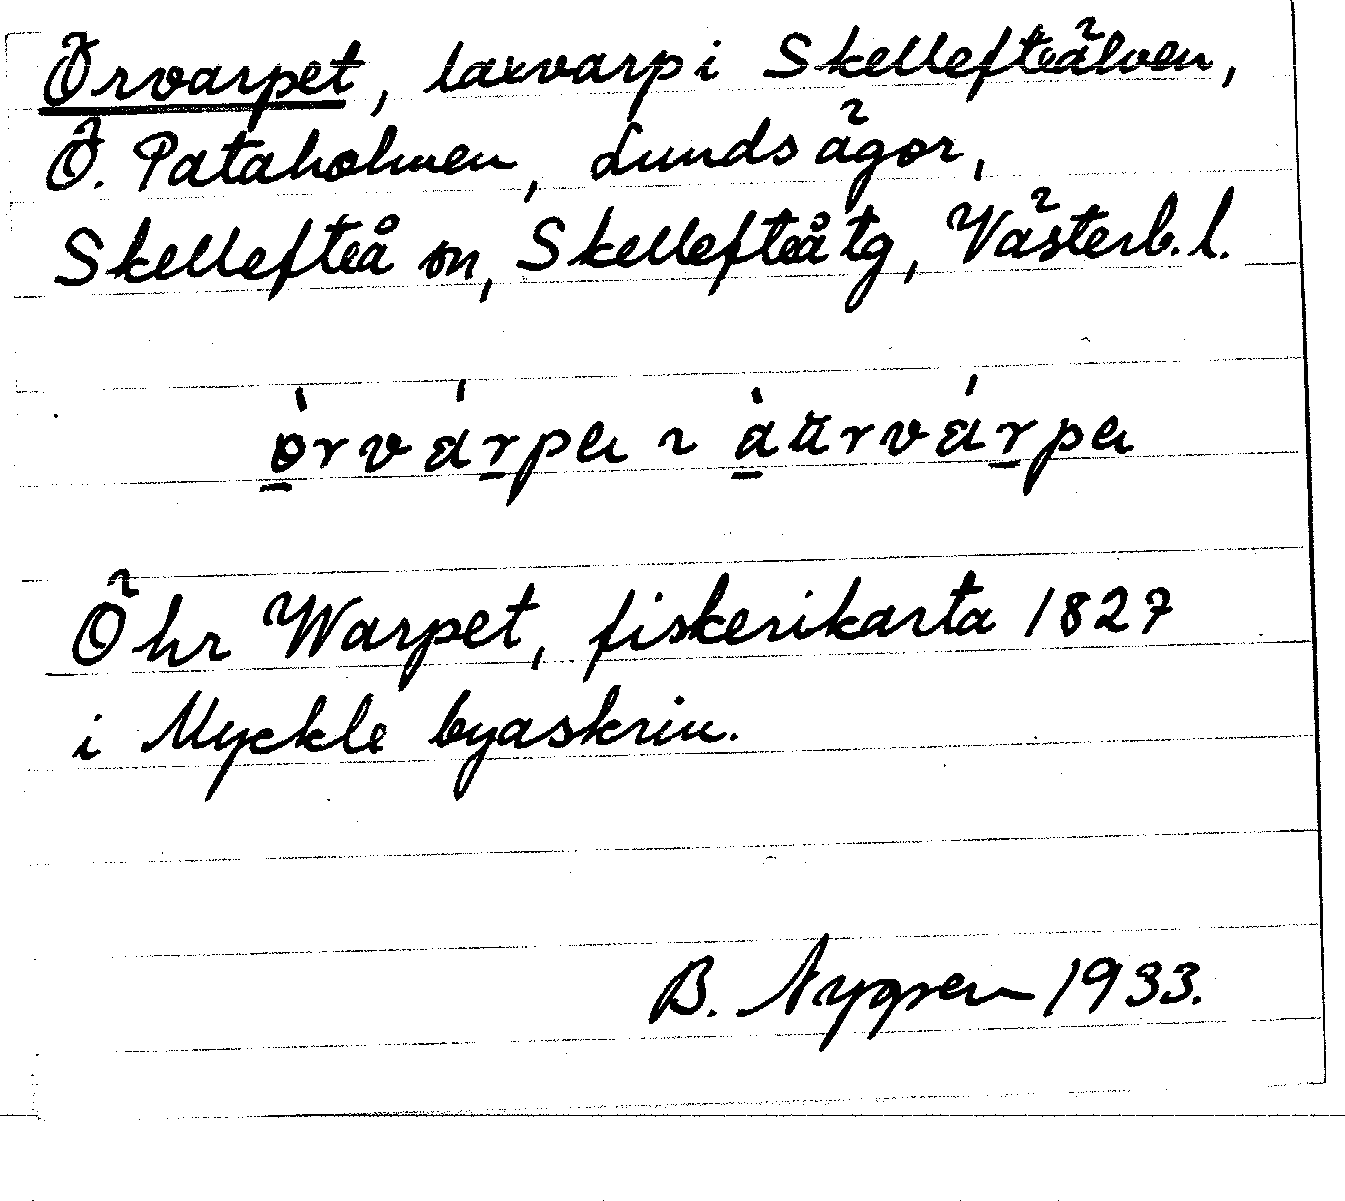 Örvarpet, laxvarp i Skellefteälven,
Ö. Pataholmen, Lunds ägor,
Skellefteå sn, Skellefteå tg, Västerb. l.
ör várpa ~ àärvárpa
Öhr Warpet, fiskerikarta 1827
i Myckle byaskrin.
B. Nygren 1933.